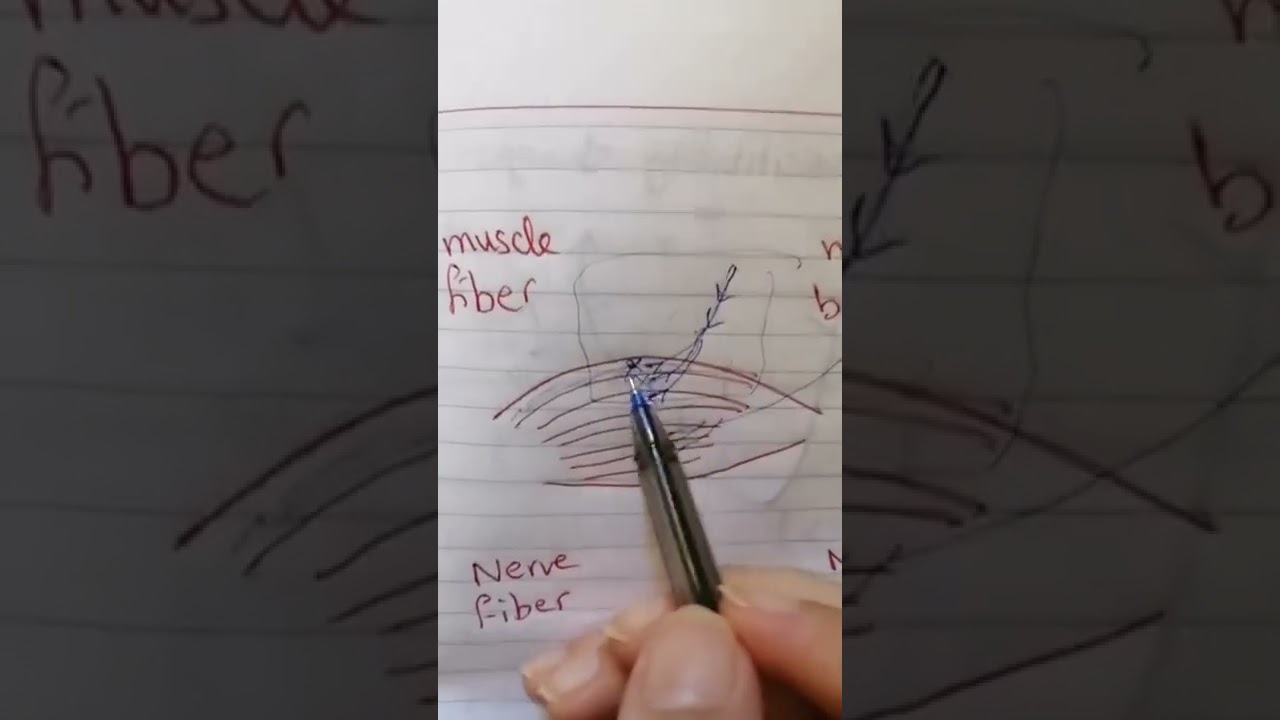 muscle
fiber
Nerve
fiber